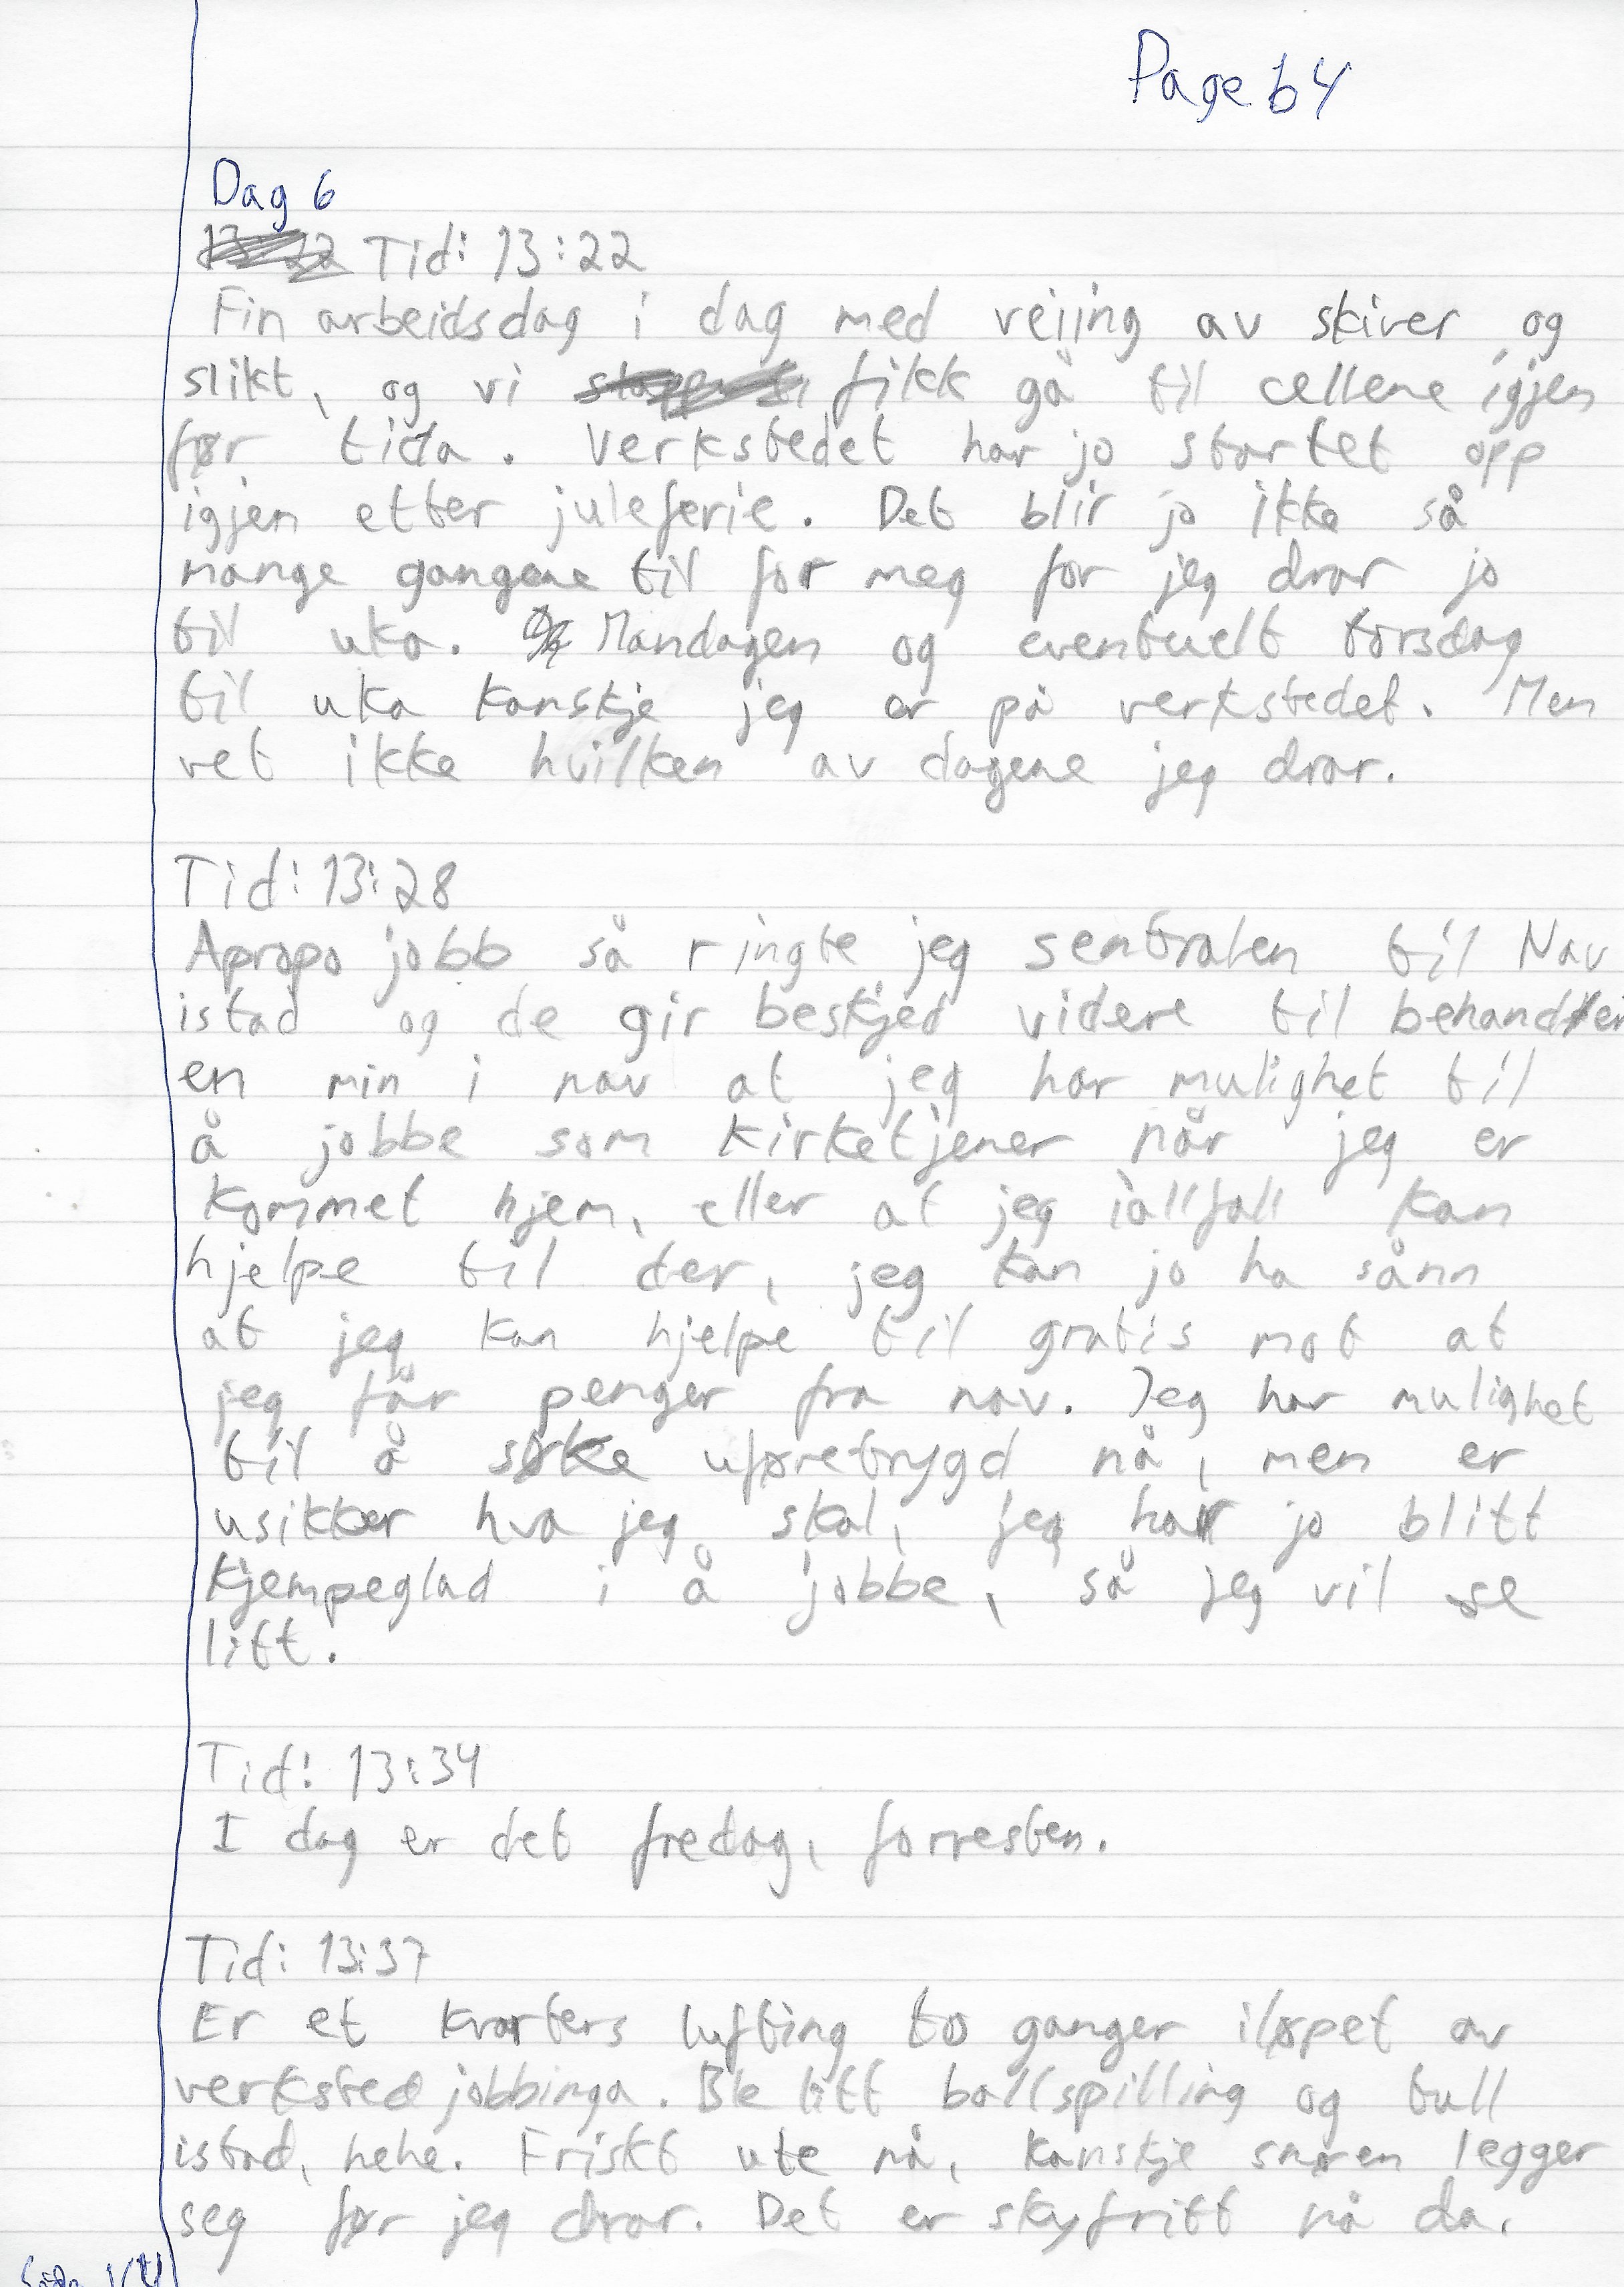 Page 64
Dag 6
Tid: 13:22
Fin arbeidsdag i dag med veiing av skiver og
slikt, og vi fikk gå til cellene igjen
før tida. Verkstedet har jo startet opp
igjen etter juleferie. Det blir jo ikke så
mange gangene til for meg for jeg drar jo
til uka. Mandagen og eventuelt torsdag
til uka kanskje jeg er på verkstedet. Men
vet ikke hvilken av dagene jeg drar.
Tid: 13:28
Apropo jobb så ringte jeg sentralen til Nav
istad og de gir beskjed videre til behandler
en min i nav at jeg har mulighet til
å jobbe som kirketjener når jeg er
kommet hjem, eller at jeg iallfall kan
hjelpe til der, jeg kan jo ha sånn
at jeg kan hjelpe til gratis mot at
jeg får penger fra nav. Jeg har mulighet
til å søke uføretrygd nå, men er
usikker hva jeg skal, jeg har jo blitt
kjempeglad i å jobbe, så jeg vil se
litt.
Tid: 13:34
I dag er det fredag, forresten.
Tid: 13:37
Er et kvarters lufting to ganger iløpet av
verkstedjobbinga. Ble litt ballspilling og tull
istad, hehe. Friskt ute nå, kanskje snøen legger
seg før jeg drar. Det er skyfritt nå da.